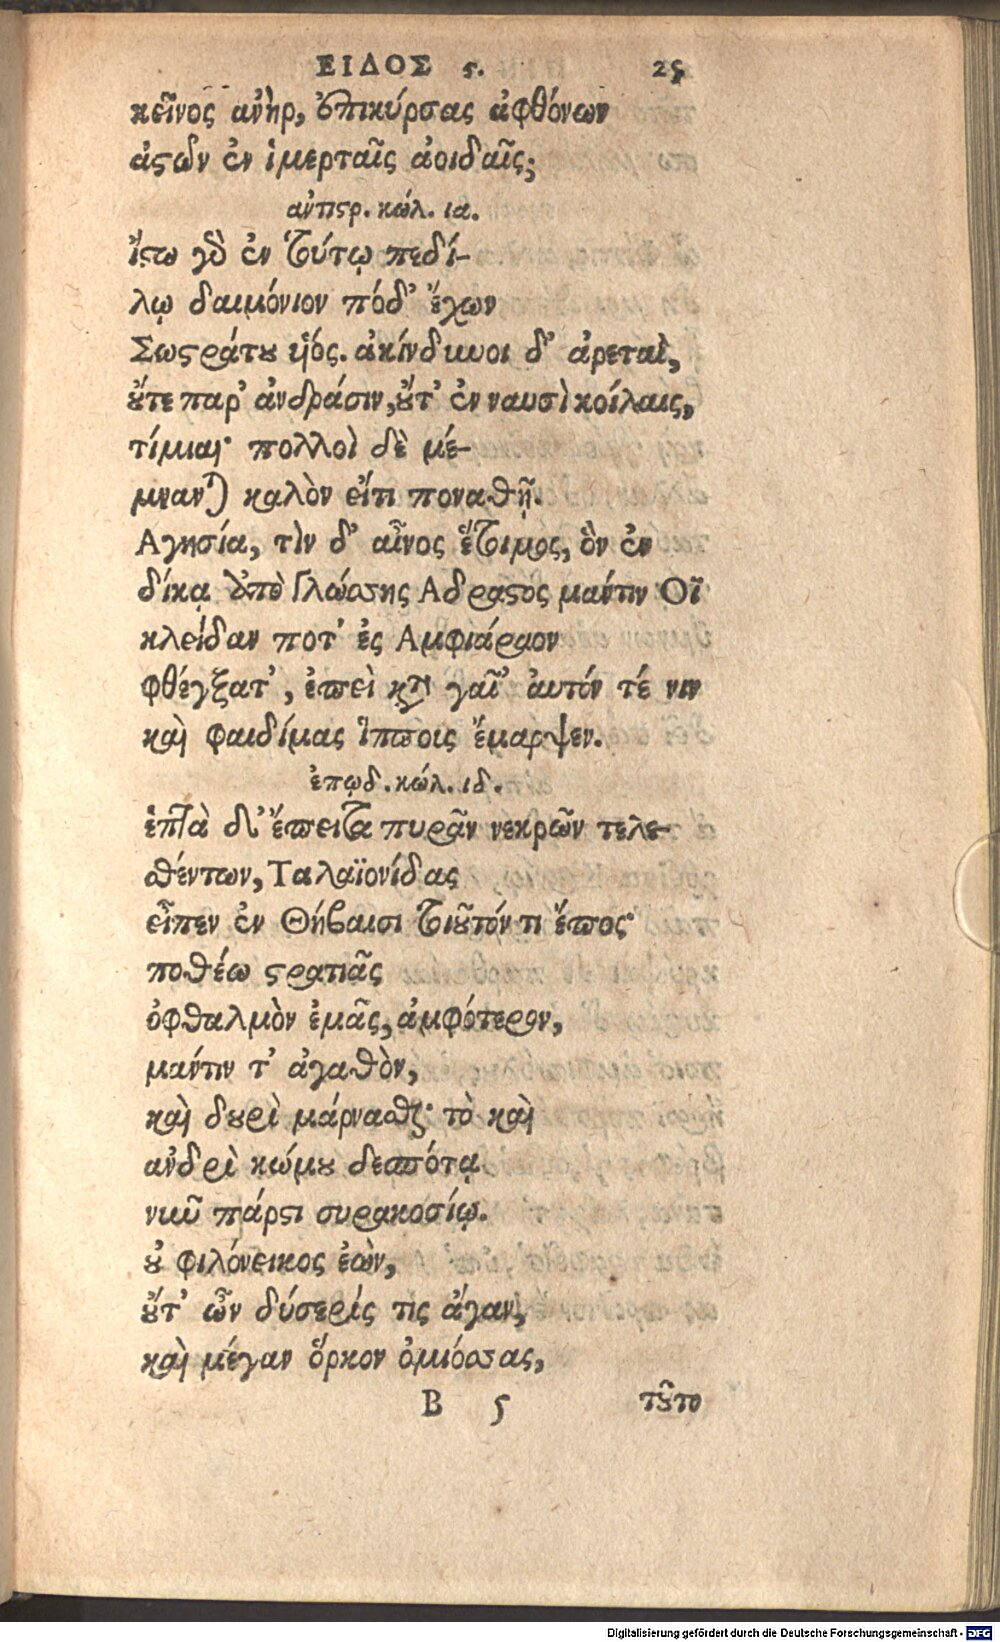 ΕΙΔΟΣ ϛ. 25
κεῖνος ἀνὴρ, ἐπικύρσας ἀφθόνων
ἀςῶν ἐν ἱμερταῖς ἀοιδαῖς;
ἀντιςρ. κώλ. ια.
ἴςω γὰρ ἐν τούτῳ πεδί-
λῳ δαιμόνιον πόδ' ἔχων
Σωςράτου υἱός. ἀκίνδυνοι δ' ἀρεταὶ,
οὔτε παρ' ἀνδράσιν, οὔτ' ἐν ναυσὶ κοίλαις,
τίμιαι· πολλοὶ δὲ μέ-
μνανται καλὸν εἴτι ποναθῇ.
Αγησία, τὶν δ' αἶνος ἕτοιμος, ὃν ἐν
δίκᾳ ἀπὸ Γλώσσης Αδραςος μάντιν Οϊ
κλείδαν ποτ' ἐς Αμφιάραον
φθέγξατ', ἐπεὶ κατὰ γαῖ' αὐτόν τέ νιν
καὶ φαιδίμας ἵπποις ἔμαρψεν.
ἐπῳδ. κώλ. ιδ.
ἑπτὰ δ' ἔπειτα πυρᾶν νεκρῶν τελε-
θέντων, Ταλαϊονίδας
εἶπεν ἐν Θήβαισι τοιοῦτόν τι ἔπος·
ποθέω ςρατιᾶς
ὀφθαλμὸν ἐμᾶς, ἀμφότερον,
μάντιν τ' ἀγαθὸν,
καὶ δουρὶ μάρναςθαι· τὸ καὶ
ἀνδρὶ κώμου δεσπότᾳ
νιῦ πάρςι συρακοσίῳ.
οὐ φιλόνεικος ἐὼν,
οὔτ' ὢν δύσερίς τις ἄγαν,
καὶ μέγαν ὅρκον ὀμόσσας,
Β 5 τοῦτο
Digitalisierung gefördert durch die Deutsche Forschungsgemeinschaft - DFG